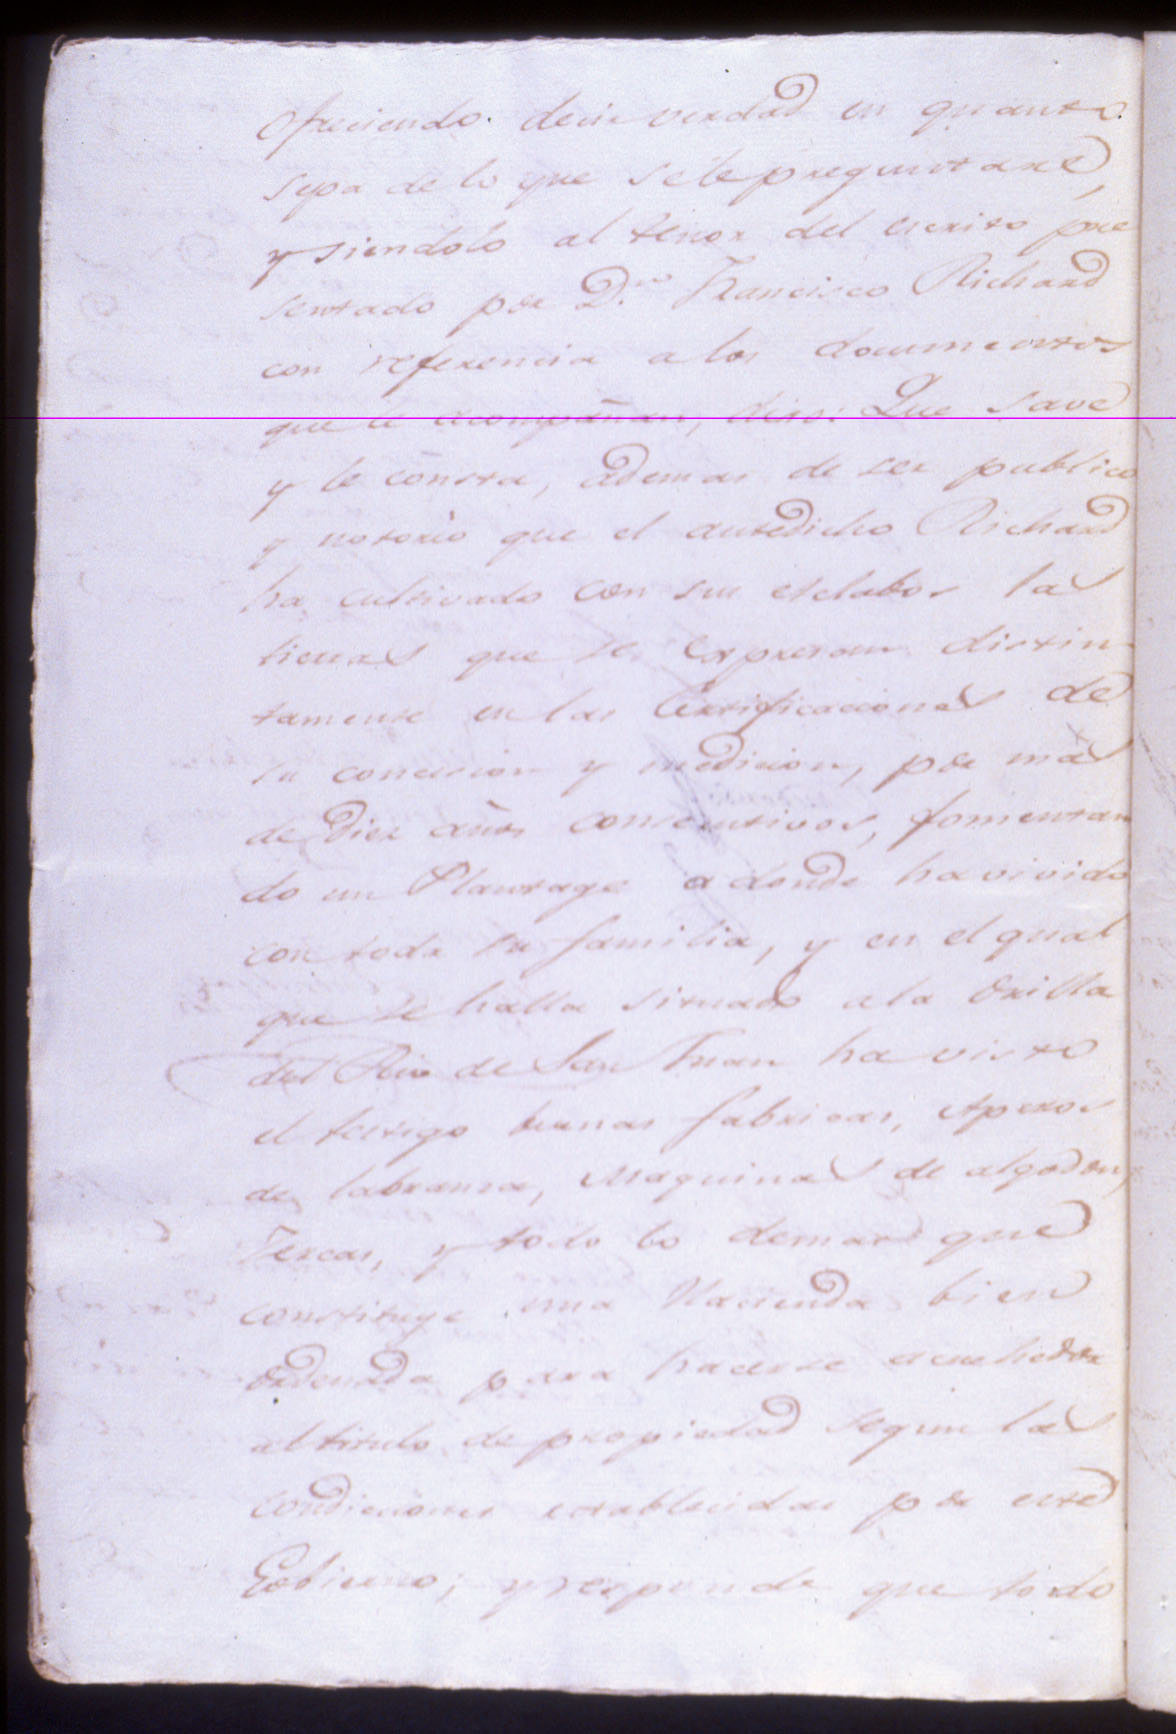 Ofreciendo decir verdad en quanto
sepa de lo que se le preguntare,
y siendolo al tenor del escrito pre
sentado por D.ⁿ Francisco Richard
con referencia a los documentos
que le acompañan, dixo: Que save
y le consta, ademas de ser publico
y notorio que el antedicho Richard
ha cultivado con sus esclabos las
tierras que se expresan distin
tamente en las Certificaciones de
su concesion y medicion, por mas
de Diez años consecutivos, fomentan
do un Plantage a donde ha vivido
con toda su familia, y en el qual
que se halla situado a la Orilla
del Rio de San Juan ha visto
el testigo buenas fabricas, Aperos
de labranza, Maquinas de algodon,
Zercas, y todo lo demas que
constituye una Hacienda bien
Ordenada para hacerse acrehedor
al titulo de propiedad segun las
Condiciones establecidas por este
Gobierno; y responde que todo